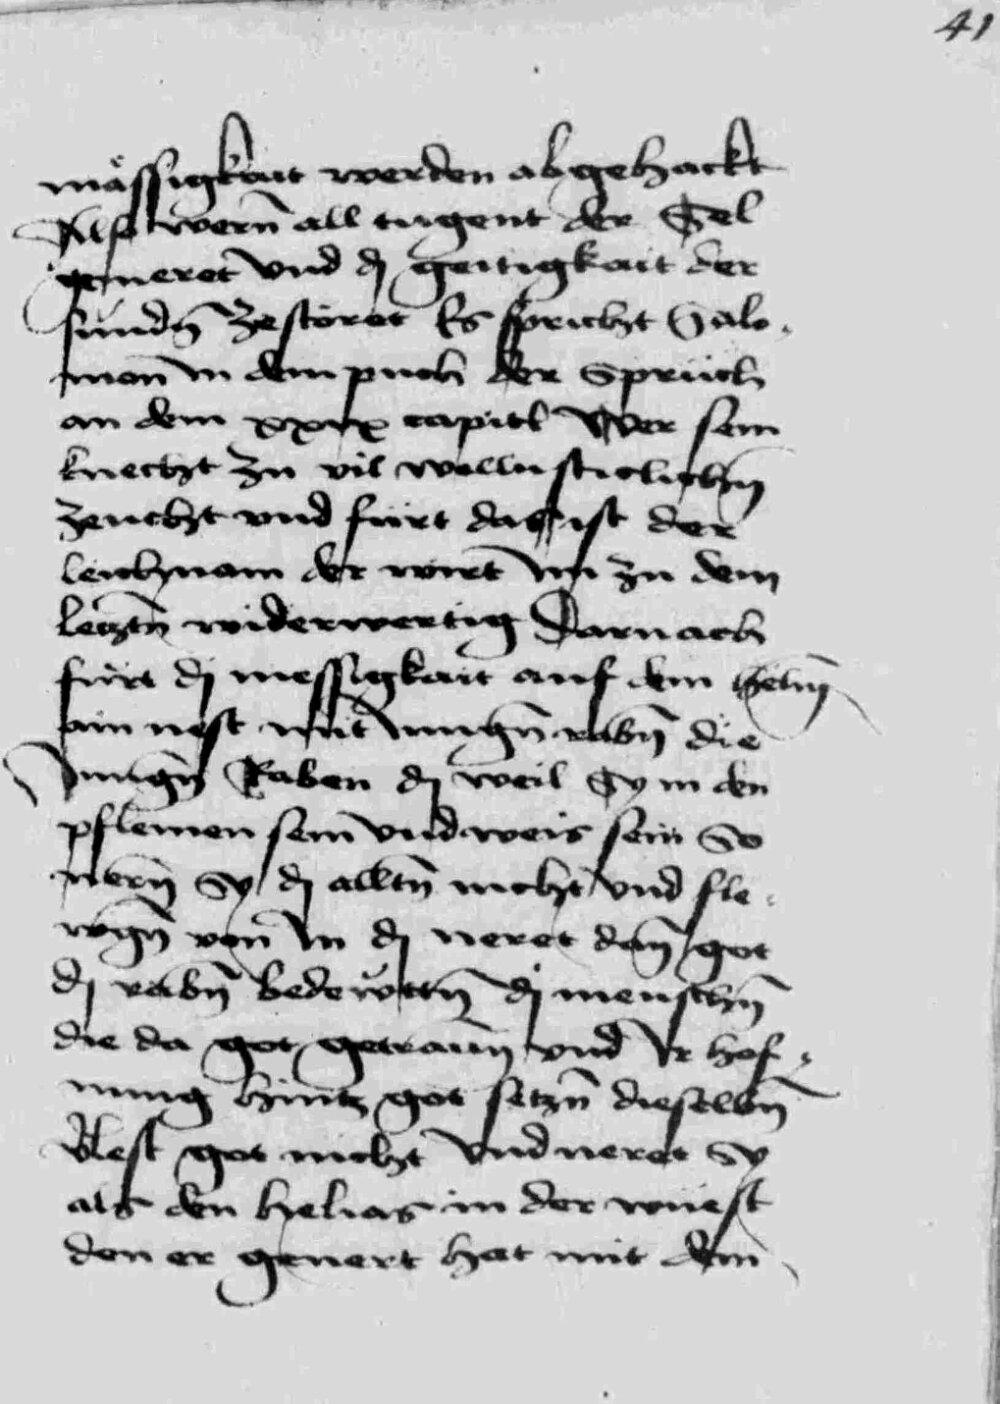 41
mässigkait werden abgehackt
Also wern̄ all tugent der Sel
gemeret vnd dj geitigkait der
sünd̄n zestöret Es spricht Salo-
mon in dem puch der Sprüch
an dem xxix capitl Wer sein
knecht zu vil wollusticlich̄n
zeucht vnd fürt das ist der
leichnam der wirt im zu dem
letzt̄n widerwertig Darnach
fürt dj messigkait auf dem helm̄
ain nest mit Junḡn rab̄n die
Junḡn Raben dj weil Sy in den
pflemen sein vnd weis sein So
nern̄ Sy dj allt̄n nicht vnd fle-
wḡn von In dj neret dan̄ got
dj rab̄n bedewtt̄n dj mensch̄n
die da got getrawn̄ vnd Ir hof-
nung hintz got setz̄n dieselb̄n
Vlest got nicht vnd neret Sy
als den helias in der wüest
den er genert hat mit dem